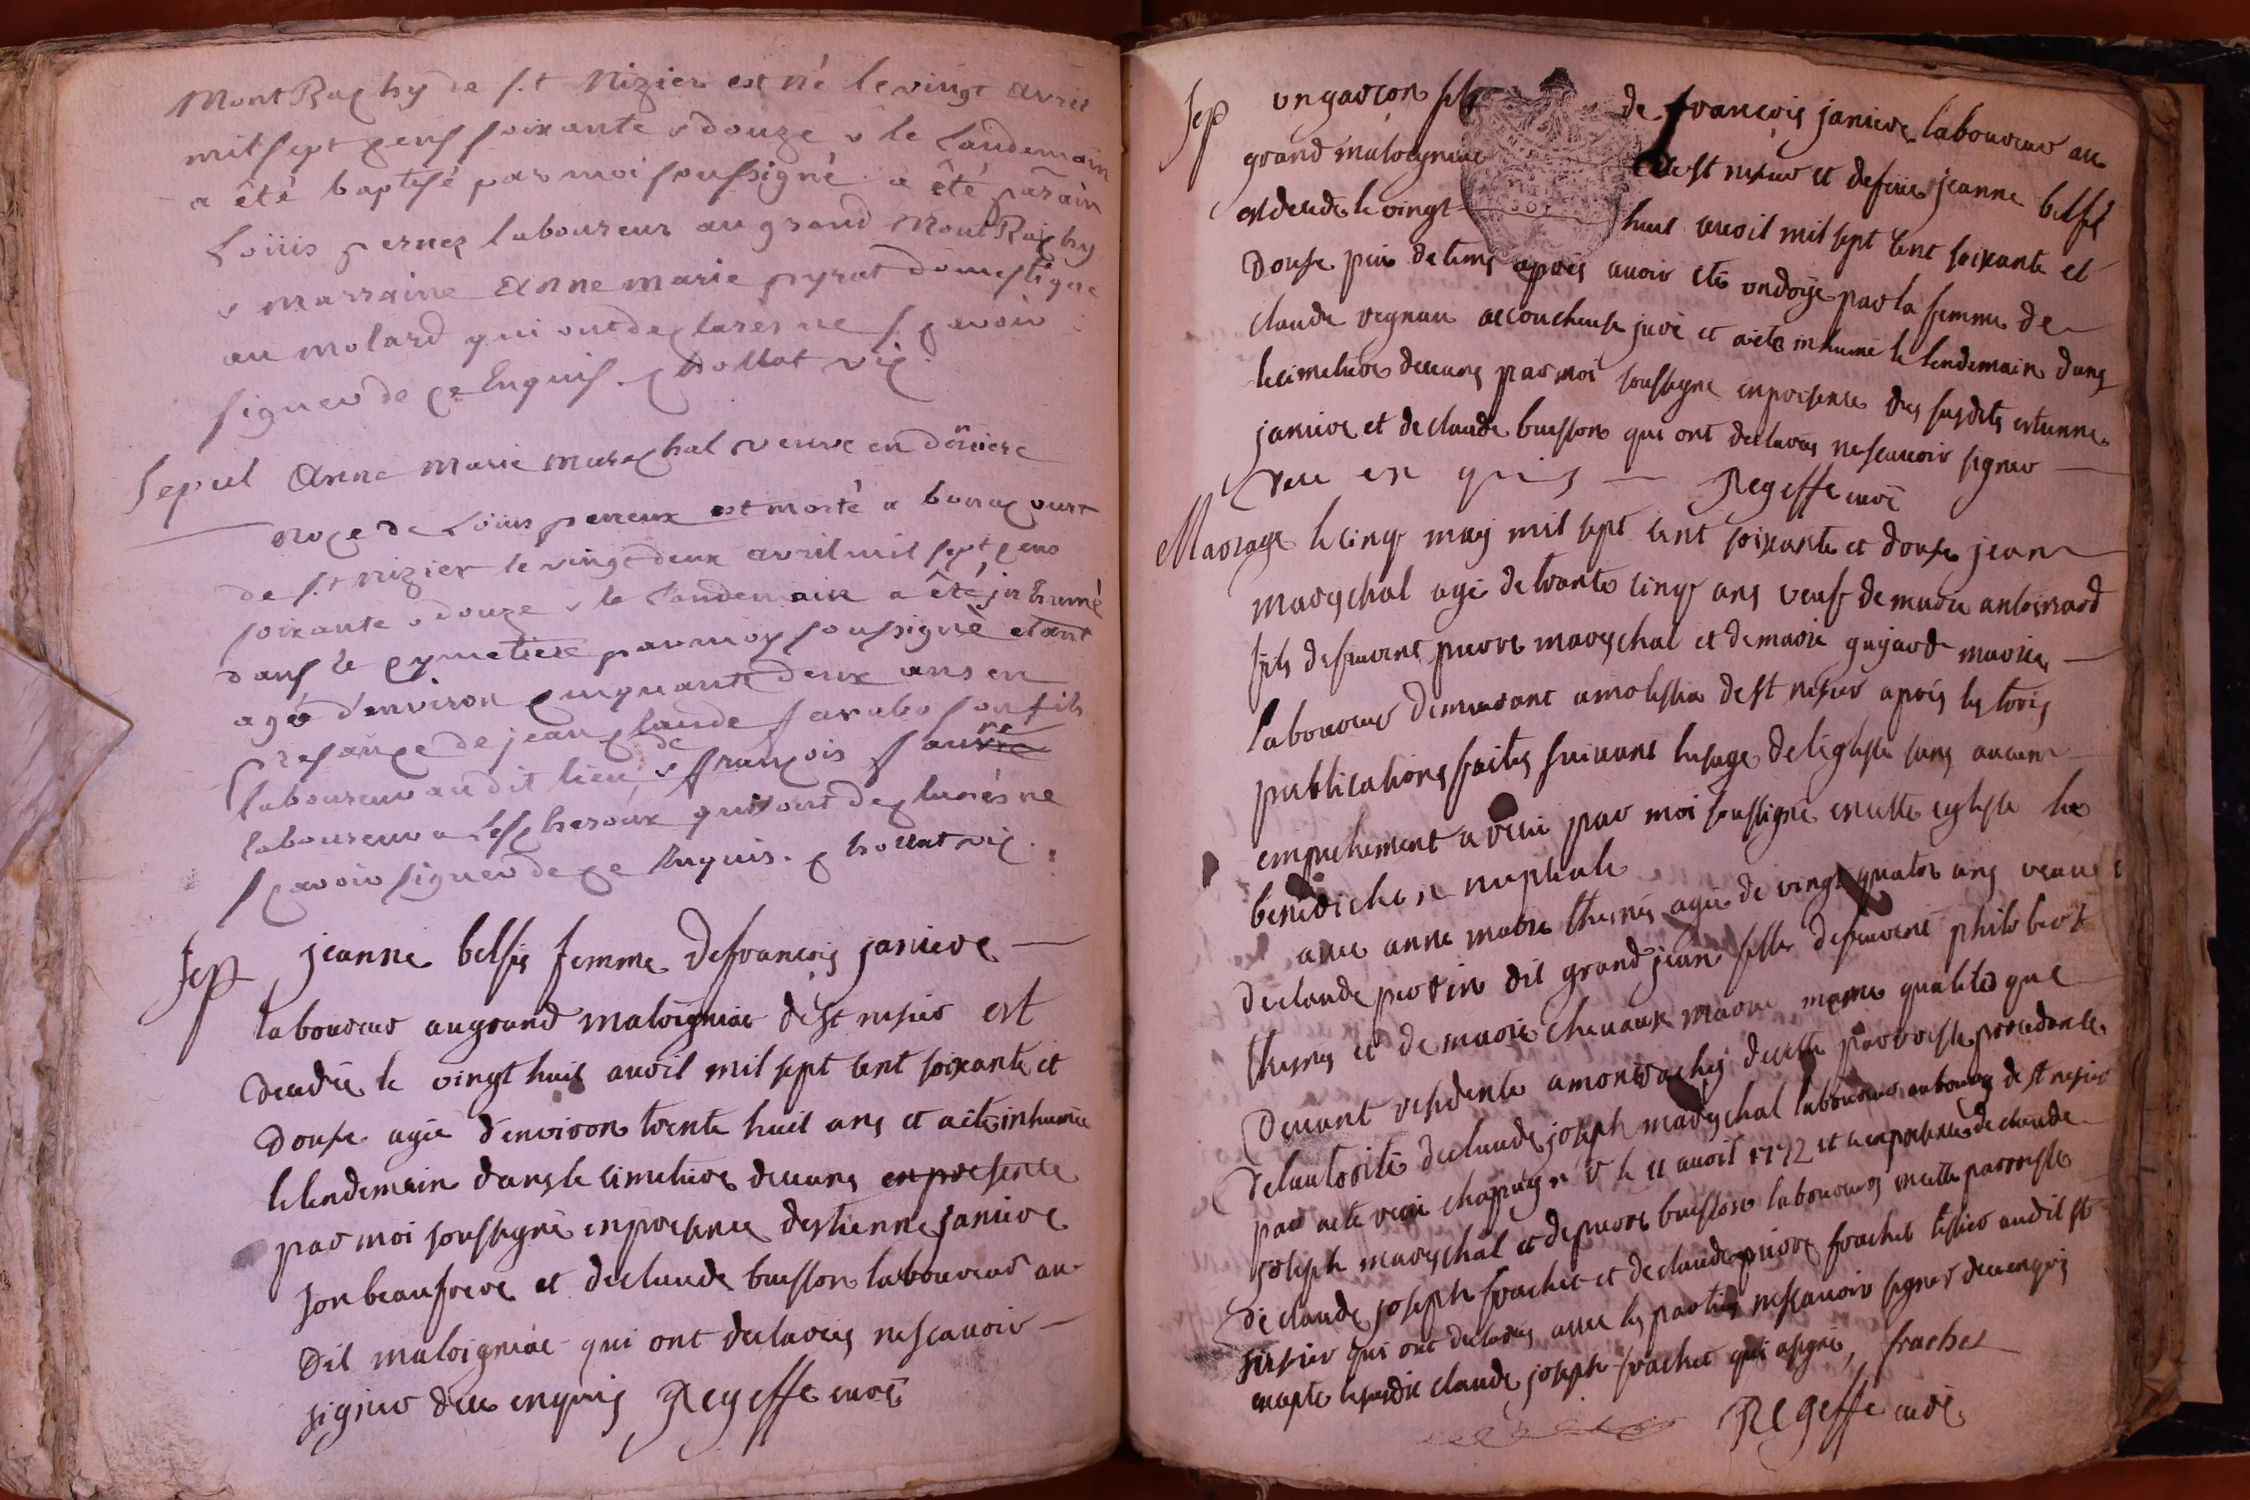 Mont Rachy de s.t Nizier est né le vingt avril
mil sept cens soixante & douze & le landemain
a été baptisé par moi soussigné a été parain
Loüis perney laboureur au grand Mont Rachy
& marraine Anne marie pyrat domestique
au molard qui ont declarés ne scavoir
signer de ce Enquis. chollat vic
Sepul Anne Marie Marechal veuve en dèrniere
noce de Loüis perreux est morte a
de s.t nizier le vingt deux avril mil sept cens
soixante & douze & le landemain a été inhumé
dans le cymetiere par moy soussigné etant
agée d'environ cinquante deux ans en
presance de jean claude son fils
laboureur au dit lieu, & de françois
laboureur a Lescheroux qui ont declarés ne
scavoir signer de ce Enquis. chollat vic.
Sep jeanne belfis femme de francois janiere
laboureur au grand maloigniac de st nisier est
decedée le vingt huit avril mil sept cent soixante et
douse agée d'environ trente huit ans et a eté inhumée
le lendemain dans le cimetiere de ceans en presence
par moi soussigné en presence d'estienne janiere
son beaufrere et de claude buisson laboureur au
dit maloigniac qui ont declares ne scavoir
signer de ce enquis Regeffe curé
Sep un garcon fils de françois janiere laboureur au
grand maloigniac de st nisier et de feüe jeanne belfis
est decedé le vingt huit avril mil sept cent soixante et
douse peu de tems apres avoir eté ondoyé par la femme de
claude vegnau accoucheuse juré et a eté inhumé le lendemain dans
le cimetiere de ceans par moi soussigné en presence des susdits estienne
janiere et de claude buisson qui ont declares ne scavoir signer
de ce enquis Regeffe curé
Mariage le cinq may mil sept cent soixante et douse jean
mareschal agé de trente cinq ans veuf de marie antoinard
fils de feu pierre mareschal et de marie guyard maries
laboureur demeurant a molistia de st nisier après les trois
publications faites suivant l'usage de l'eglise sans aucun
empechement a reçu par moi soussigné en cette eglise la
benediction nuptiale
avec anne marie thenés agée de vingt quatre ans veuve
de claude perdrix dit grand jean fille de feu philibert
thenes et de marie chevaux marie meme qualité que
devant residente a montrachy de cette parroisse procedante
de l'autorité de claude joseph mareschal laboureur au bourg de st nisier
par acte reçu chapuy n.re le 11 avril 1772 et en presence de claude
joseph mareschal et de pierre buisson laboureurs en cette parroisse
de claude joseph frachet et de claude pierre frachet tissier audit st
nisier qui ont declares avec les parties ne scavoir signer de ce enquis
excepté le susdit claude joseph frachet qui a signé, frachet
Regeffe curé